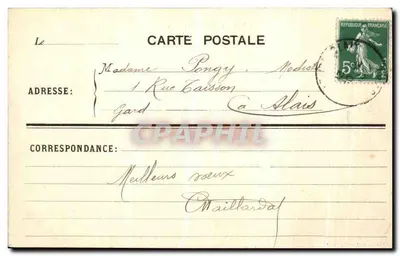 CARTE POSTALE
REPUBLIQUE FRANÇAISE
5c
Le
Madame Pongy, Modiste
ADRESSE:
1 Rue Taisson
Gard
à Alais
CPAPHIL
CORRESPONDANCE:
Meilleurs vœux
CMaillardal